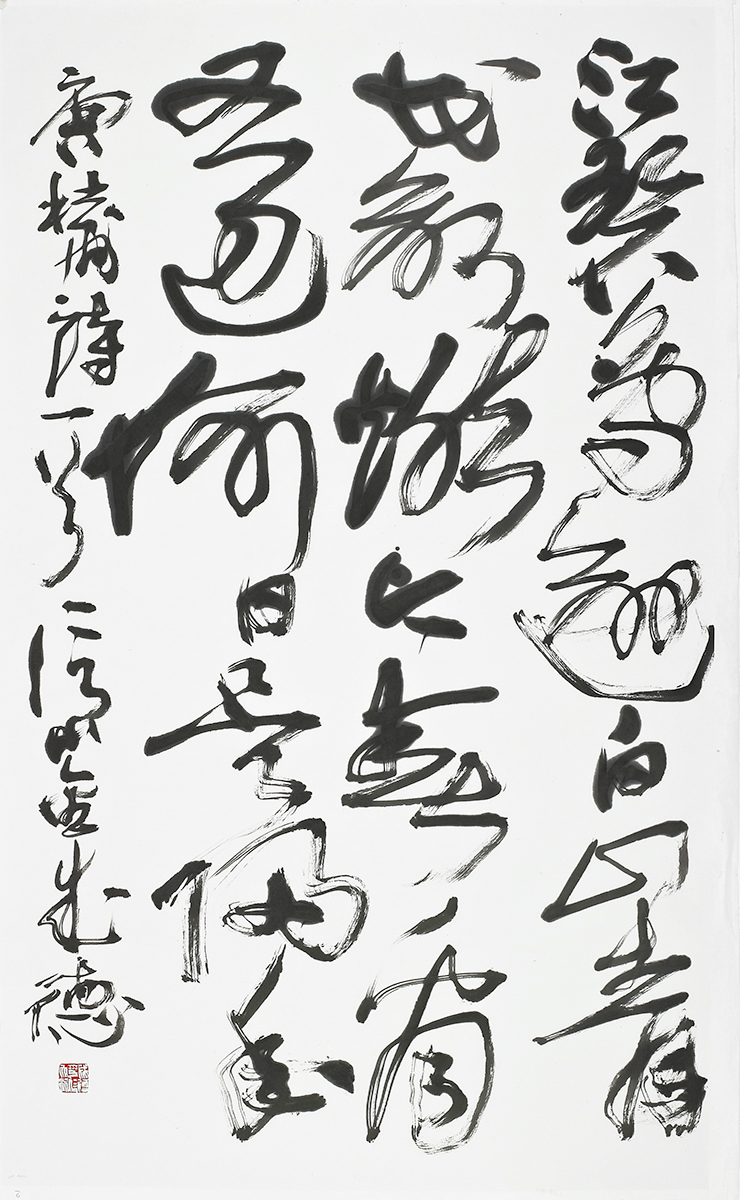 江碧鳥逾白山青
花欲燃今春看
又過何日是歸年
唐杜甫詩一首 金成德